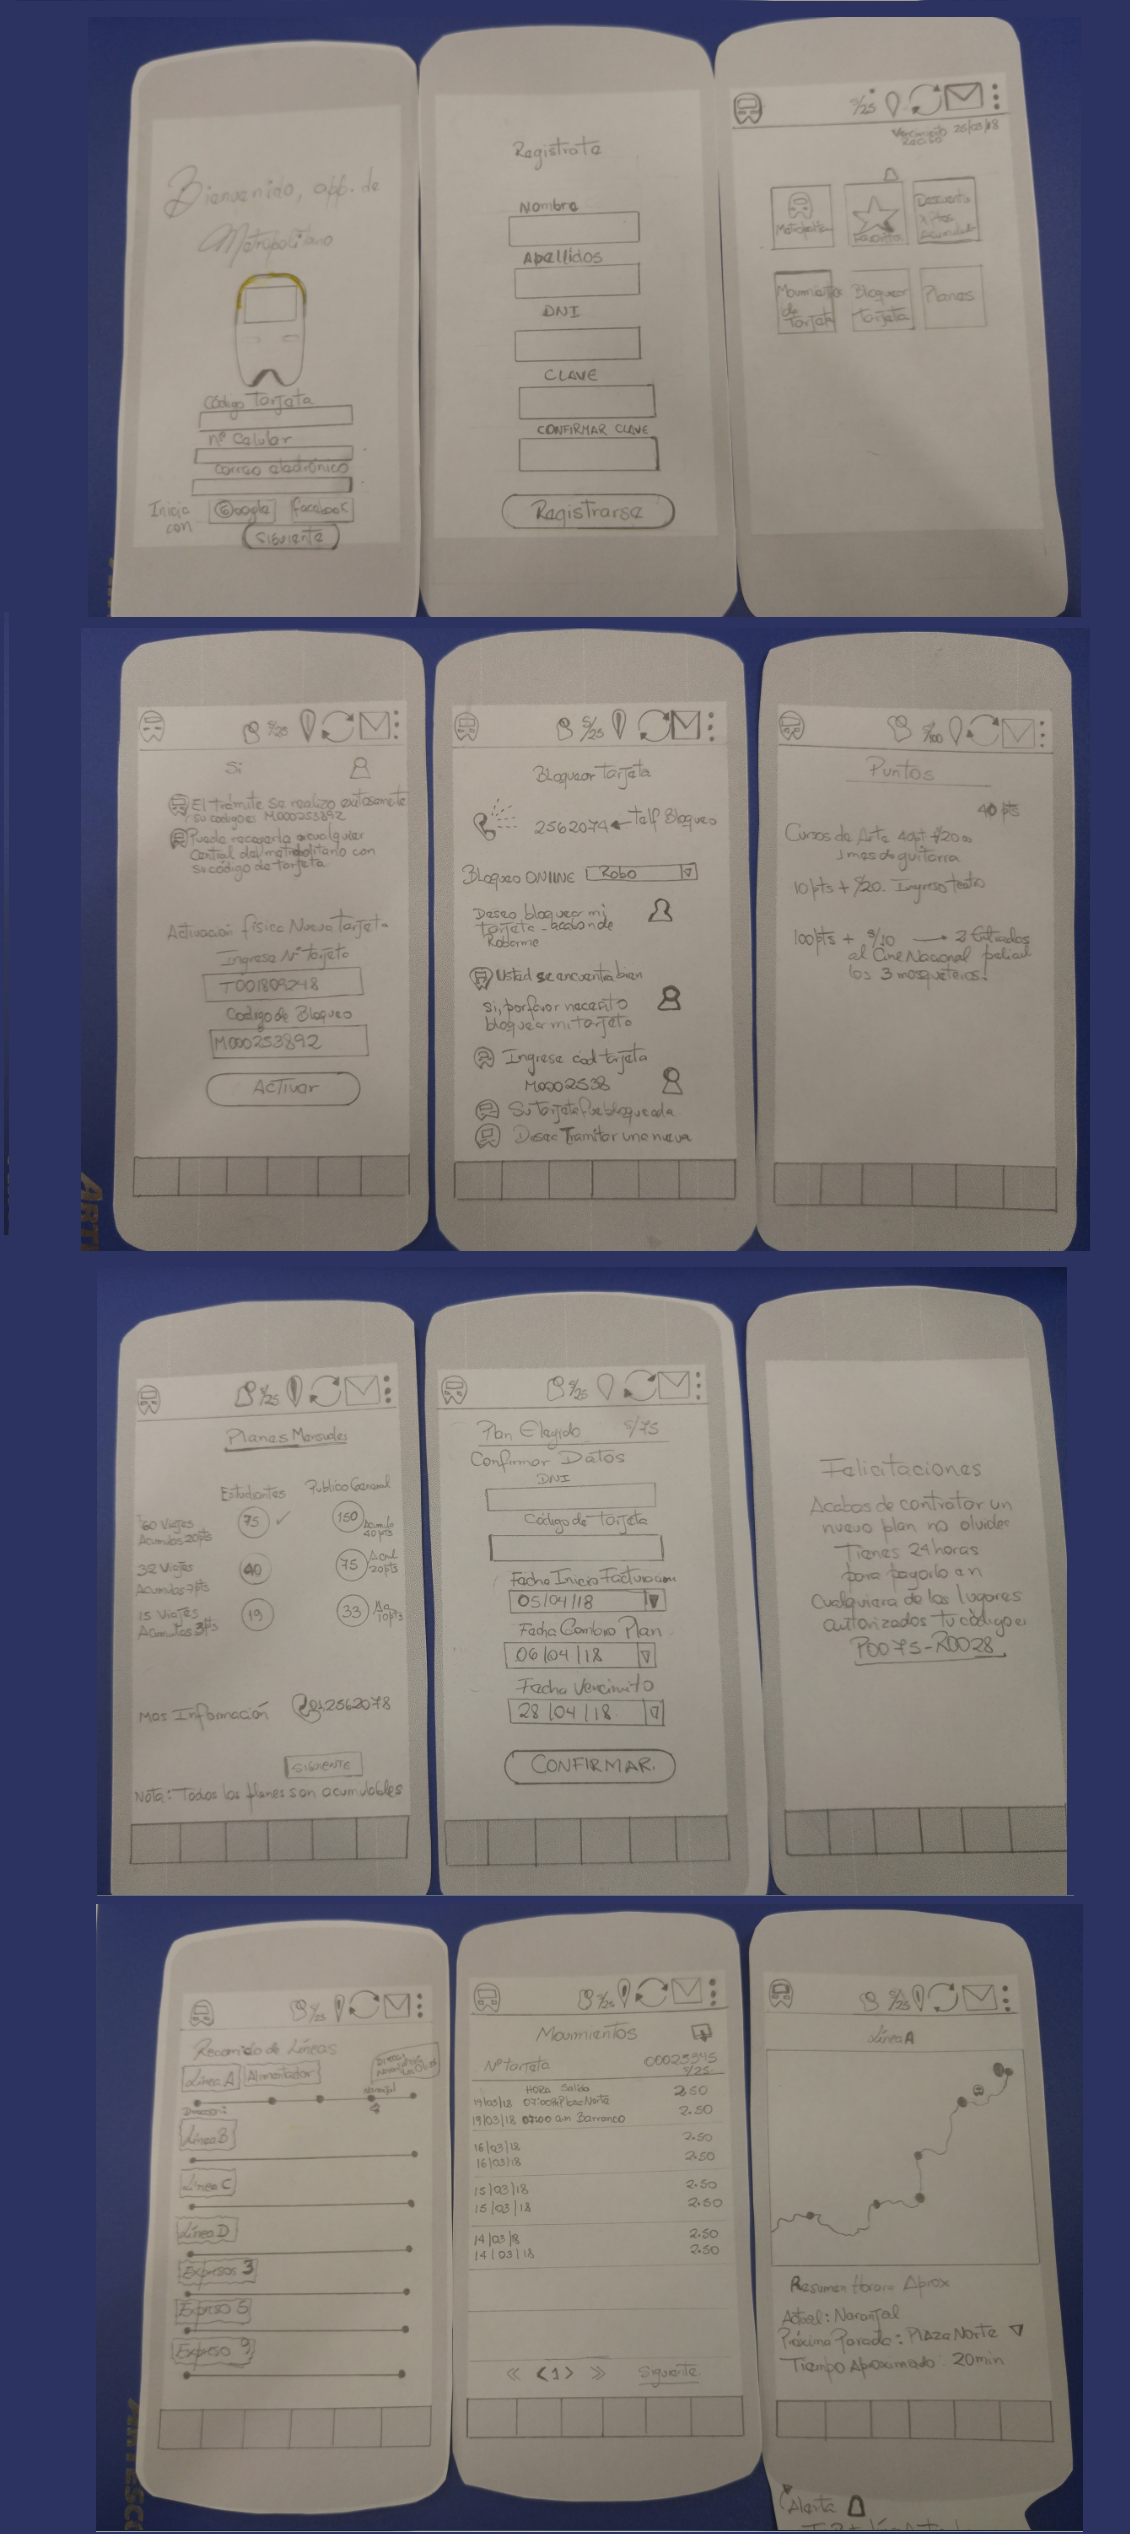 Bienvenido, app. de
Metropolitano
Código Tarjeta
nº Celular
correo electrónico
Inicia con
Google
facebook
Siguiente
Registrate
Nombre
Apellidos
DNI
CLAVE
CONFIRMAR CLAVE
Registrarse
S/25
Vencimiento 25/03/18
Metropolitano
Favorito
Descuento
x Ptos
Acumulat
Movimientos
de
Tarjeta
Bloquear
Tarjeta
Planes
S/25
Si
El trámite se realizo exitosamente
su codigo es M000253892
Puede recogerla a cualquier
Central del metropolitano con
su código de tarjeta
Activación físico Nueva Tarjeta
Ingrese Nº Tarjeta
T001809248
Codigo de Bloqueo
M000253892
ACTIVAR
S/25
Bloquear Tarjeta
2562074 ← Telf Bloqueo
Bloqueo ONLINE
Robo
Deseo bloquear mi
tarjeta - acaban de
Robarme
Usted se encuentra bien
si, por favor necesito
bloquear mi tarjeta
Ingrese cod tarjeta
M0002538
Su Tarjeta fue bloqueada
Desea Tramitar una nueva
S/100
Puntos
40 pts
Cursos de Arte 40pt + S/20.00
1 mes de guitarra
10 pts + S/20. Ingreso teatro
100pts + S/10 → 2 Entradas
al Cine Nacional pelicul
los 3 mosqueteros!
S/25
Planes Mensuales
Estudiantes
Publico General
60 Viajes
Acumulas 20pts
75 ✓
150
Acumula
40 pts
32 Viajes
Acumulas 7pts
40
75
Acul
20pts
15 Viajes
Acumulas 3pts
19
33
Ac
10pts
Mas Información
01 2562078
SIGUIENTE
Nota: Todos los planes son acumulables
S/25
Plan Elegido S/75
Confirmar Datos
DNI
Código de tarjeta
Fecha Inicio Facturacion
05/04/18
Fecha Cambio Plan
06/04/18
Fecha Vencimito
28/04/18.
CONFIRMAR.
Felicitaciones
Acabas de contratar un
nuevo plan no olvides
Tienes 24 horas
para pagarlo en
cualquiera de los lugares
autorizados tu código es
P0075-R0028
S/25
Recorrido de Líneas
Línea A
Alimentador
Naranjal
Línea B
Línea C
Línea D
Expresos 3
Expreso 5
Expreso 9
S/25
Movimientos
Nº tarjeta
00025345
S/25
HORA Salida
19/03/18 07:00 Plaza Norte 2.50
19/03/18 07:00 am Barranco 2.50
16/03/18 2.50
16/03/18 2.50
15/03/18 2.50
15/03/18 2.50
14/03/18 2.50
14/03/18 2.50
« <1> » Siguiente
S/25
Línea A
Resumen Horario Aprox
Actual: Naranjal
Próxima Parada: PLAZA NORTE
Tiempo Aproximado: 20min
Alerta